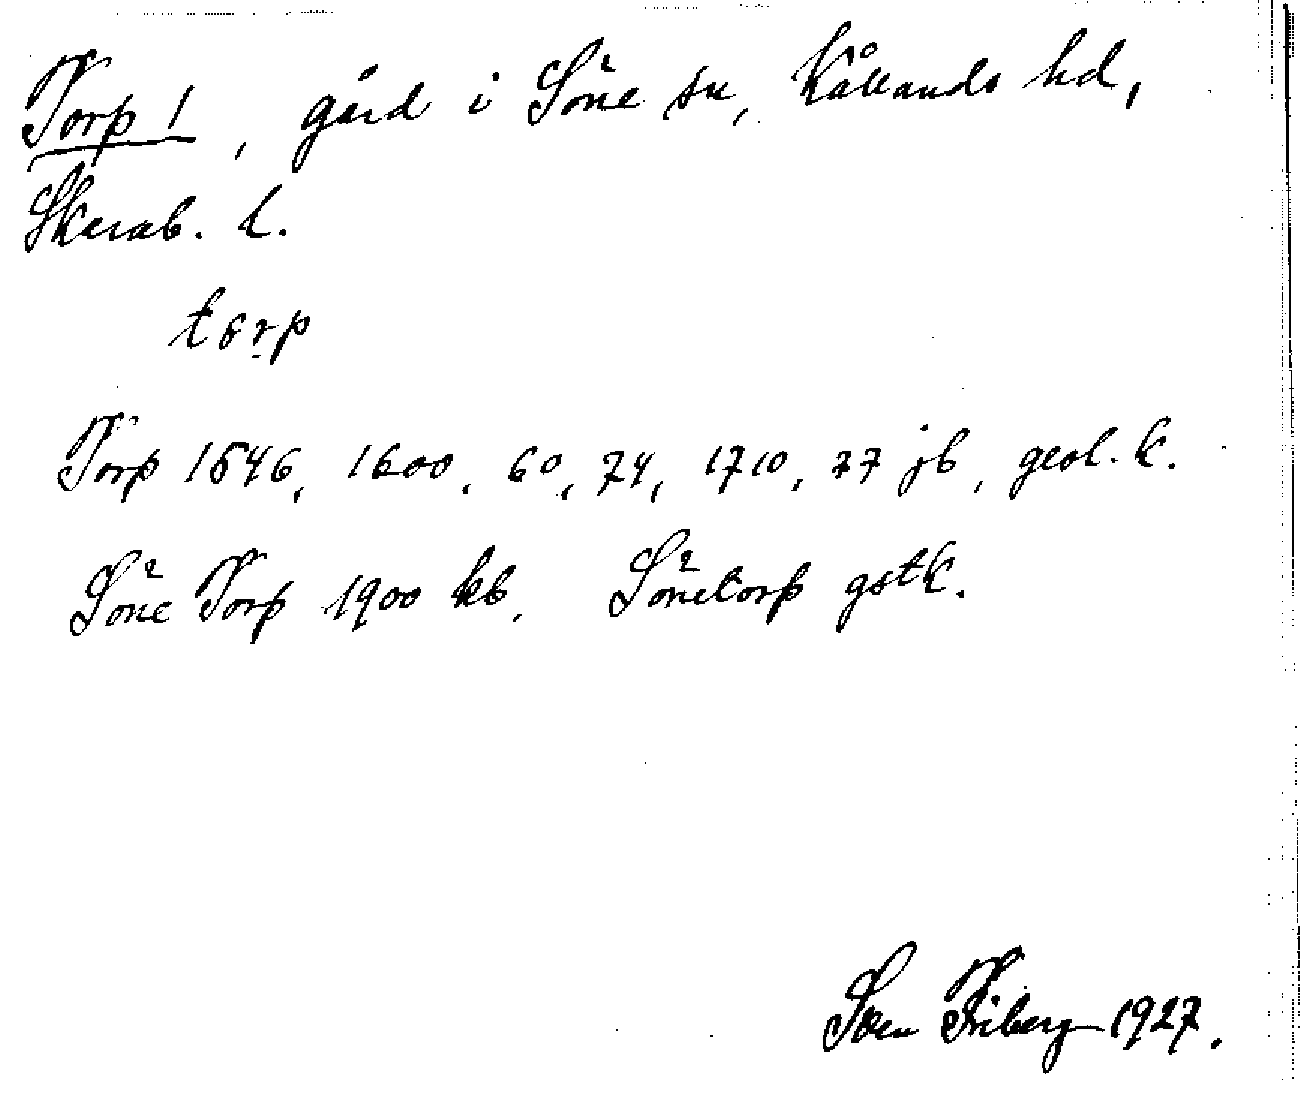 Torp 1, gård i Söne sn, Kållands hd,
Skarab. l.
torp
Torp 1546, 1600, 60, 74, 1710, 77 jb, geol. k.
Söne Torp 1900 kb, Sönetorp gstk.
Sven Friberg 1927.